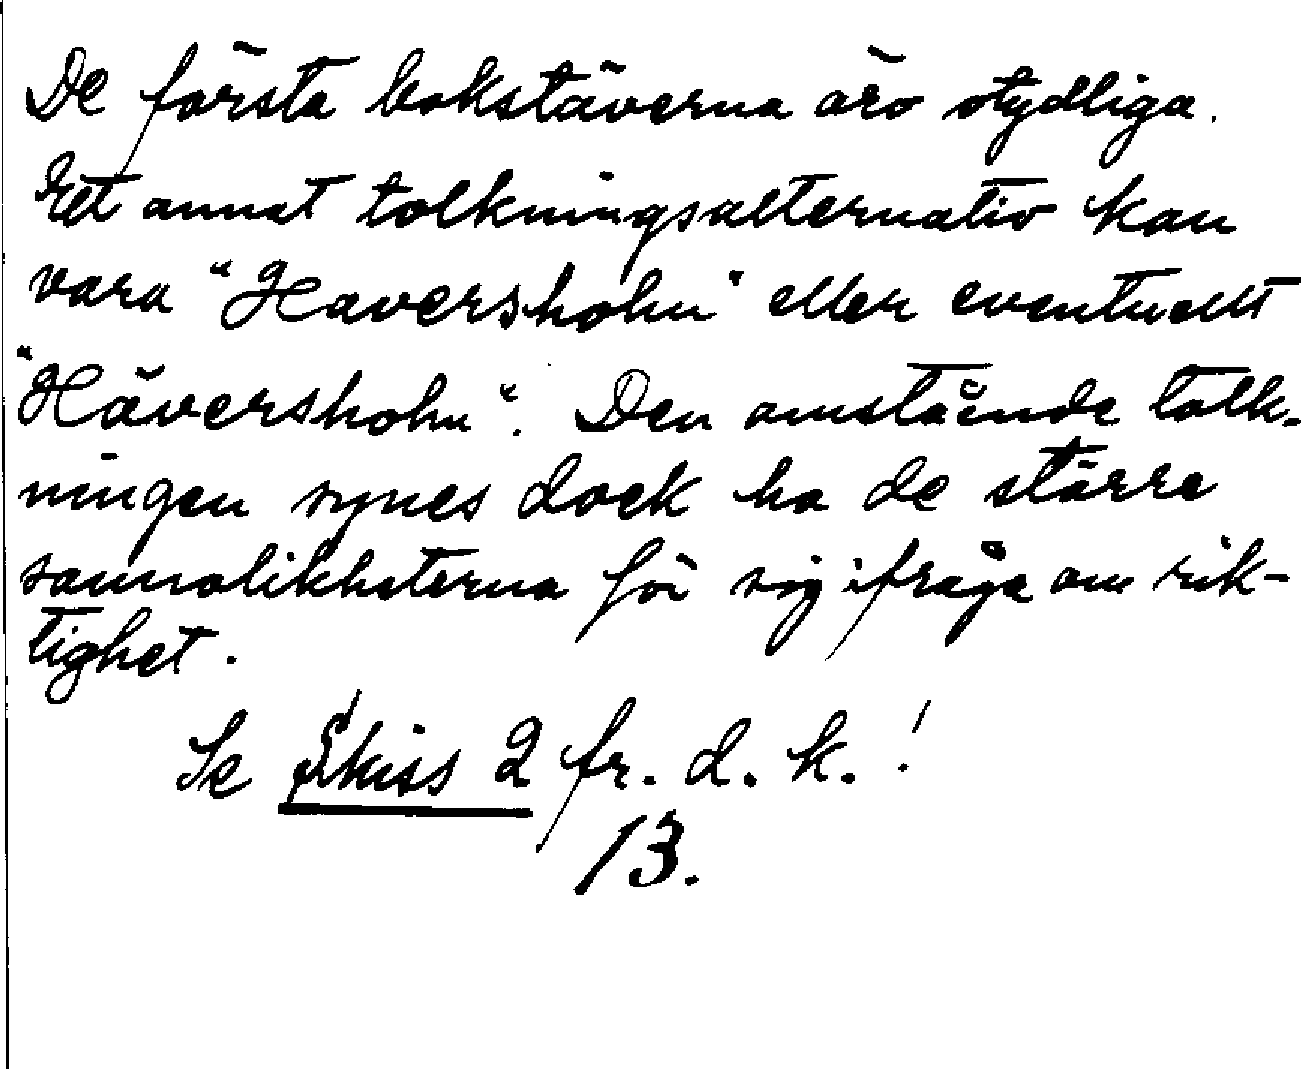 De första bokstäverna äro otydliga.
Ett annat tolkningsalternativ kan
vara "Havershohn" eller eventuellt
"Hävershohn". Den omstående tolk-
ningen synes dock ha de större
sannolikheterna för sig ifråga om rik-
tighet.
Se Skiss 2 fr. d. k. !
13.